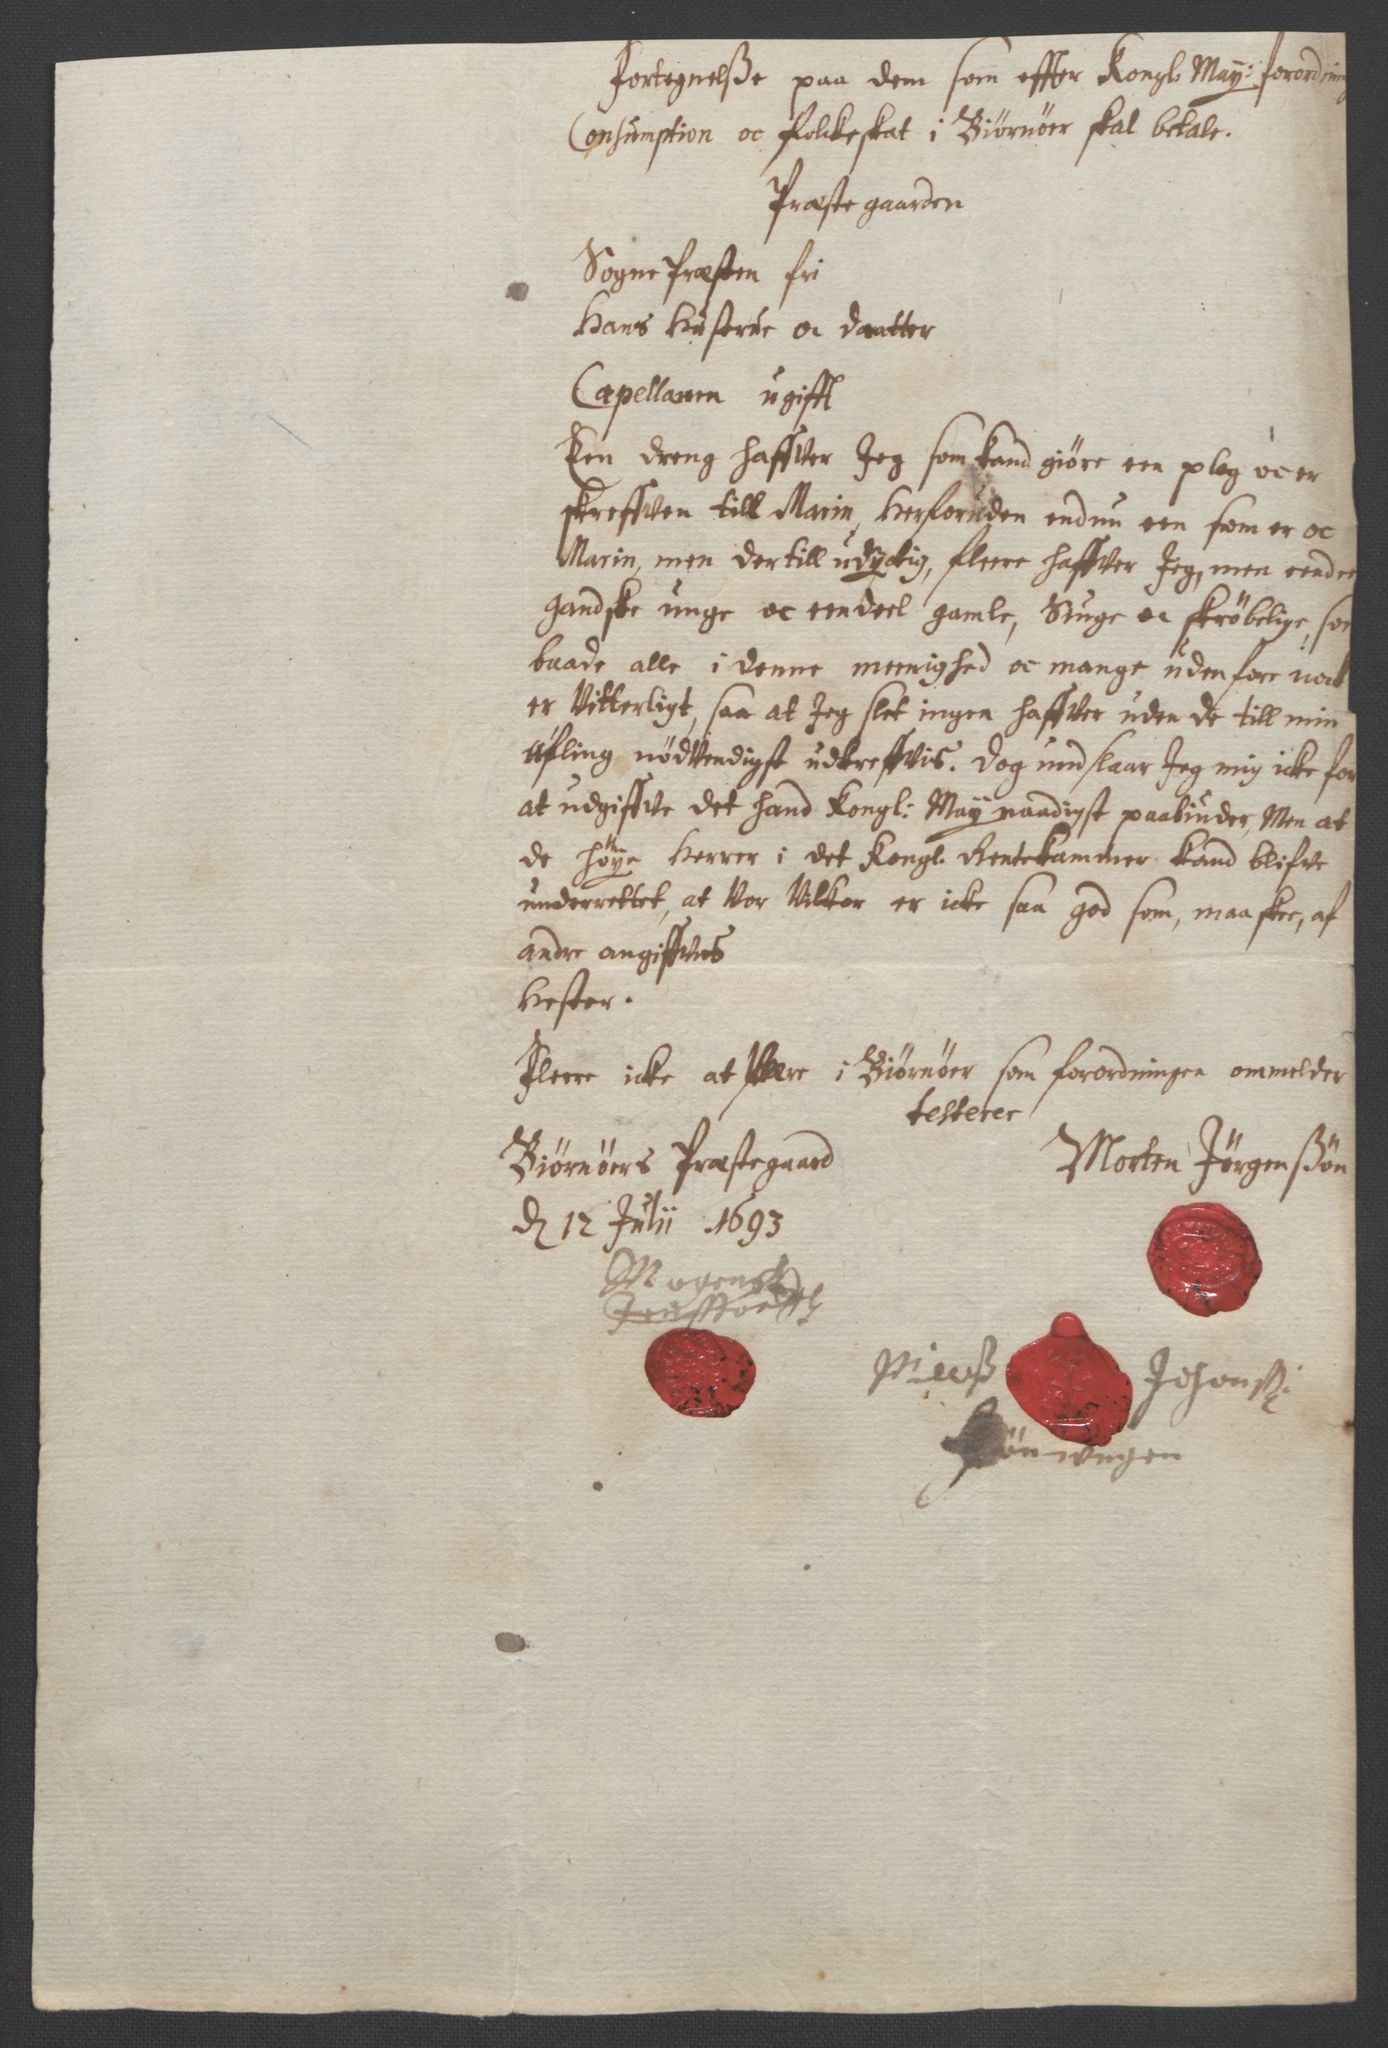 Fortegnelsse paa dem som effter Kongl: Maÿ: forordning
Consumption oc folckeskat i Biørnöer skal betale.
Præste gaarden
Sogne Præsten fri
Hans Hustrue oc daatter
Capellanen ugifft
Een dreng haffver Jeg som kand giöre een plog oc er
skreffven till Marin, Herforuden endnu een som er oc
Marin, men dertill udÿctig, fleere haffver Jeg, men eendeel
gandske unge oc eendeel gamle, Siuge oc skröbelige, som
baade alle i denne meenighed oc mange uden fore nock
er Vitterligt, saa at Jeg slet ingen haffver uden de till min
afling nödvendigst udkreffvis. Dog undslaar Jeg mig icke for
at udgiffve det hand Kongl: Maÿ naadigst paabiuder, Men at
de höÿe Herrer i det Kongl. Rentekammer kand blifve
underrettet, at Vor Vilkor er icke saa god som, maa skee, af
andre angiffves
Hester.
Fleere icke at Være i Biørnöer som forordningen ommelder
testerer
Biørnöers Præstegaard Morten Jörgenssön
d 12 Julii 1693
Mogens
Nielss Johanss: